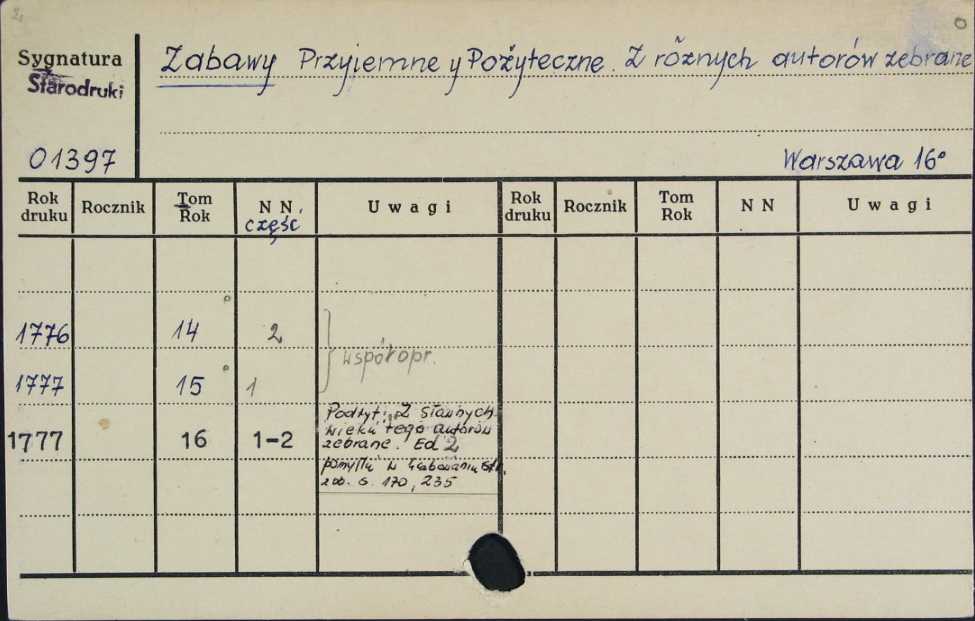 Zabawy Przyiemne y Pożyteczne. Z rõżnych autorów zebrane
Sygnatura
Starodruki
01397
Warszawa 16°
Rok druku Rocznik Tom Rok N N, część U w a g i Rok druku Rocznik Tom Rok N N U w a g i
1776 14 2
współopr.
1777 15 1
1777 16 1-2 Podtyt.: Z sławnych
wieku tego autorów
zebrane. Ed 2
w
zob. s. 170, 235